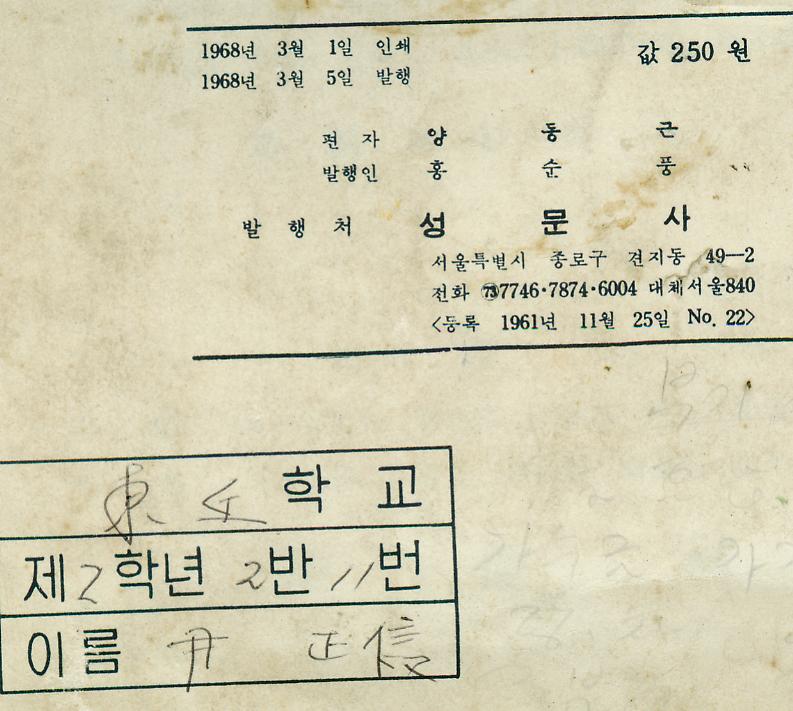 1968년 3월 1일 인쇄
값 250 원
1968년 3월 5일 발행
편 자 양 동 근
발행인 홍 순 풍
발 행 처 성 문 사
서울특별시 종로구 견지동 49—2
전화 ㉓7746·7874·6004 대체서울840
<등록 1961년 11월 25일 No. 22>
東 丘 학 교
제 2 학년 2 반 11 번
이름 尹 正信